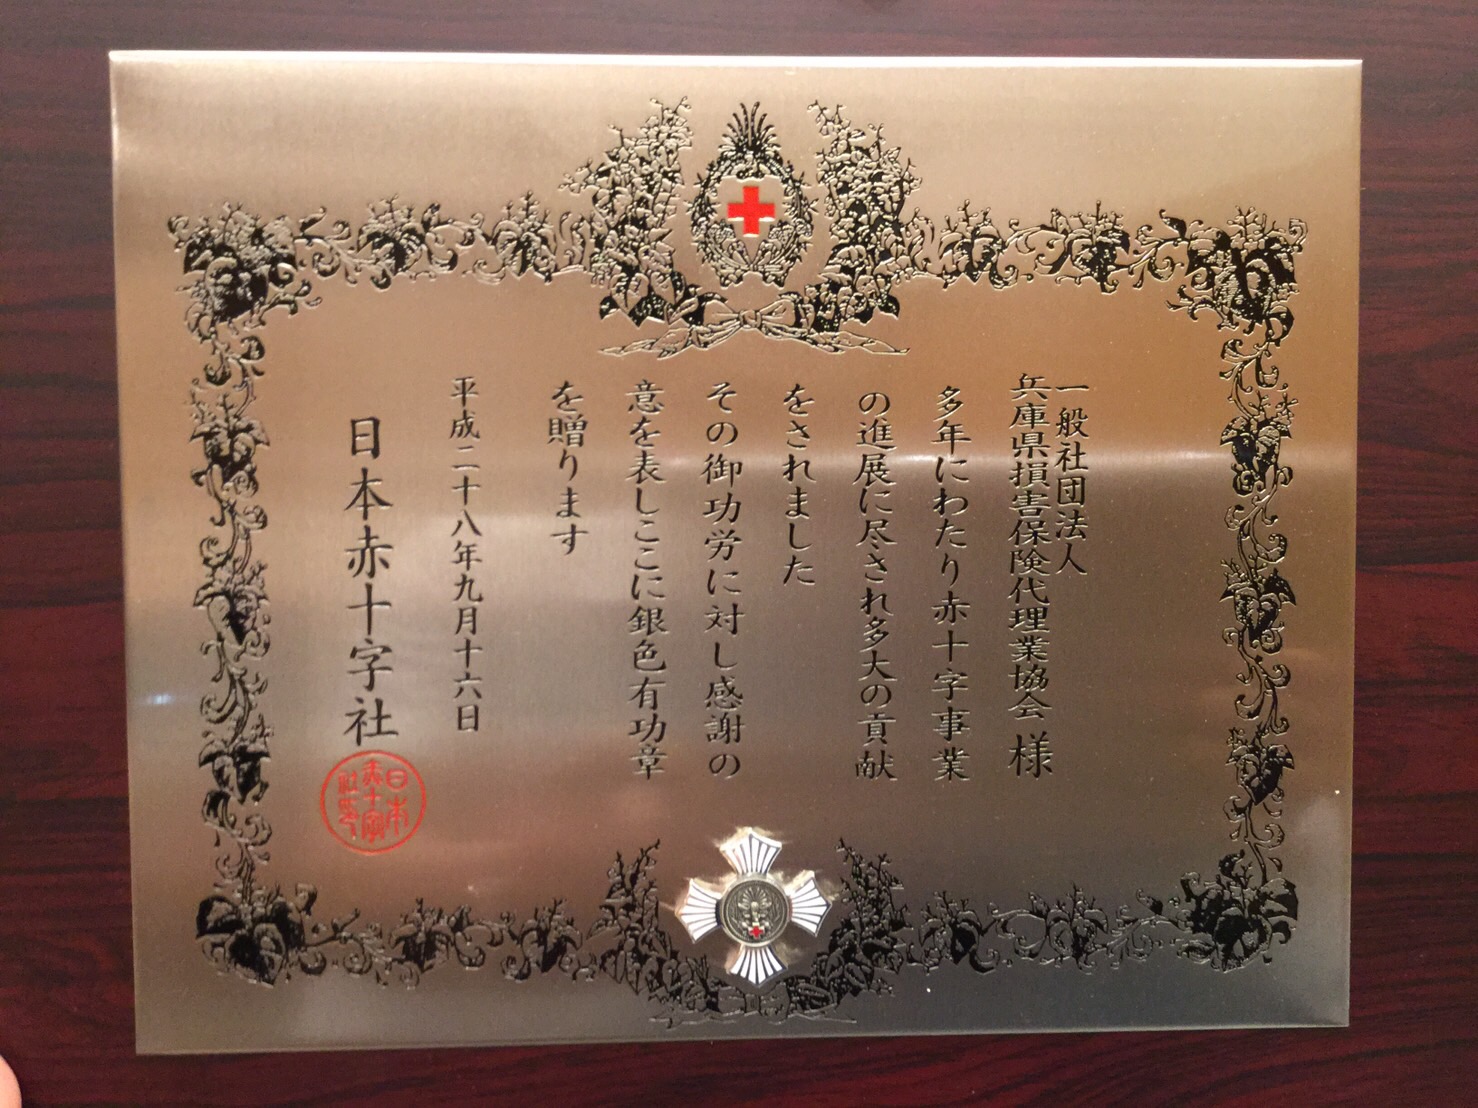 一般社団法人
兵庫県損害保険代理業協会 様
多年にわたり赤十字事業
の進展に尽され多大の貢献
をされました
その御功労に対し感謝の
意を表しここに銀色有功章
を贈ります
平成二十八年九月十六日
日本赤十字社
日本
赤十字
社